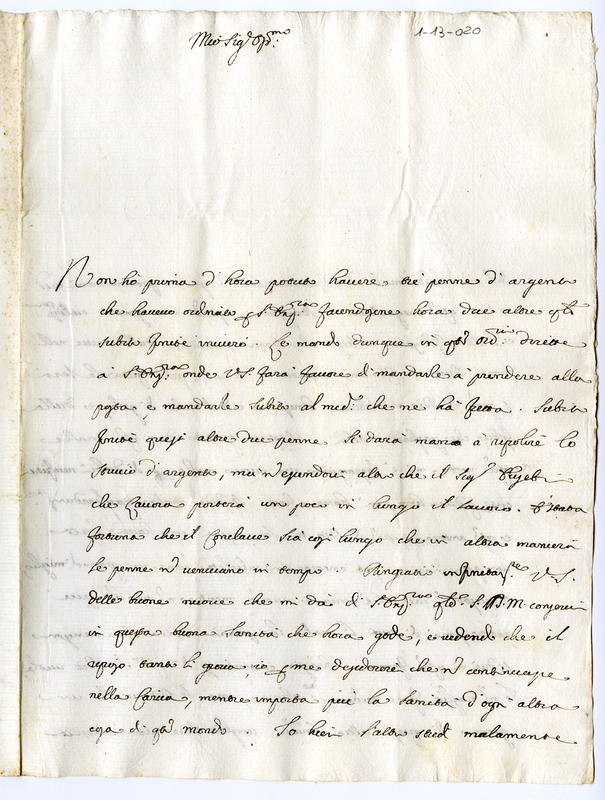 Mio Sig.r Oss.mo
1-13-020
Non hò prima d'hora potuto havere tre penne d'argento
che havevo ordinato p S. Em.za facendosene hora due altre q.li
subito finite inviero. Le mando dunque in q.to ord.rio dirette
à S. Em.za onde V.S. farà favore di mandarle à prendere alla
posta, e mandarle subito al med.o che ne hà fretta. Subito
finite queste altre due penne si darà mano a ripolire lo
stuccio d'argento, mà n essendovi altro che il Sig.r
che lavora porterà un poco in lungo il lavoro. È stata
fortuna che il Conclave sia così lungo che in altra maniera
le penne n venivano in tempo. Ringratio infinitam.te V.S.
delle buone nuove che mi dà di S. Em.za S. D. M. conservi
in questa buona sanità che hora gode, e vedendo che il
riposo tanto li giova, io p me desidererei che n continuasse
nella carica, mentre importa più la sanità d'ogni altra
cosa di q.to mondo. Io hier l'altro malamente